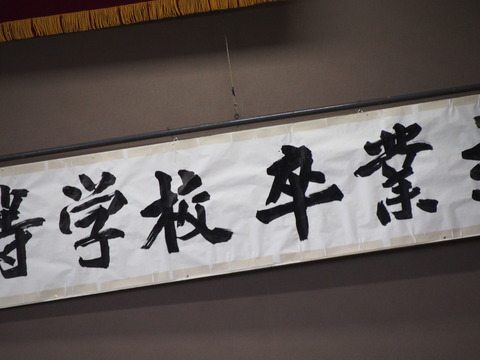 等学校卒業